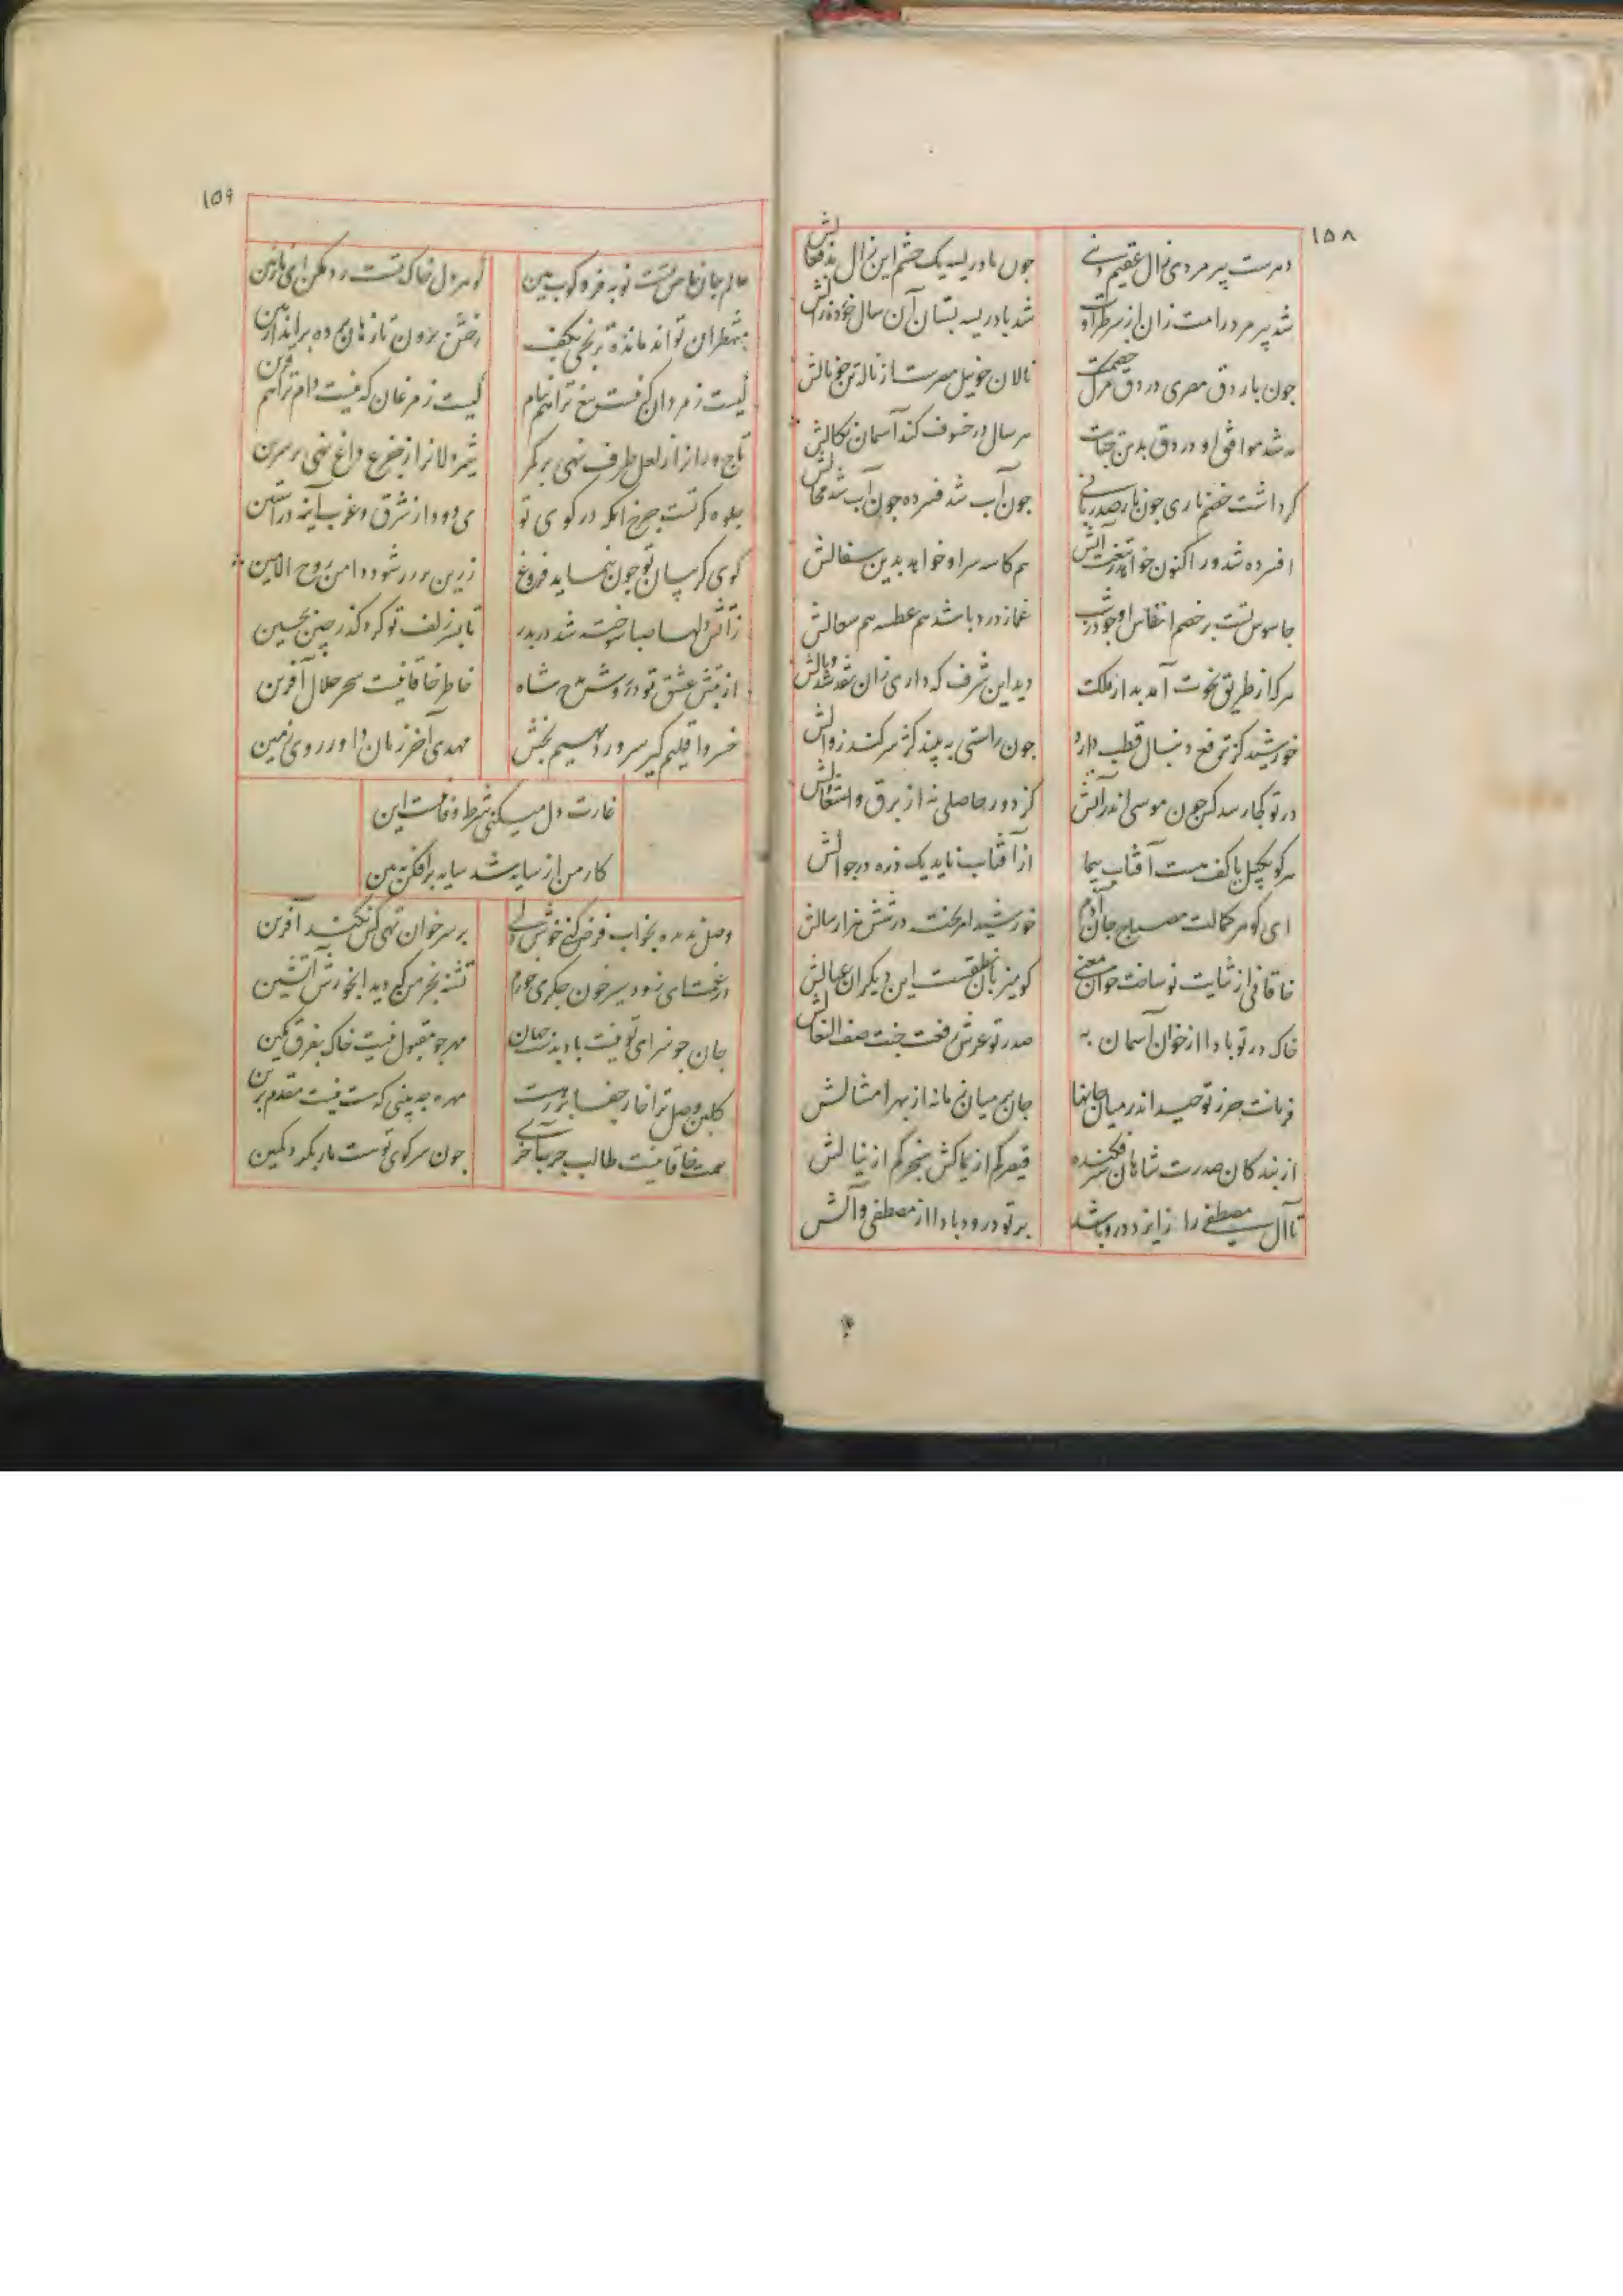 ۱۵۸
دهرست پیر مردی زال عقیم دنیی چون بادریسه یک چشم این زال بدفعالش
شد پیر مرد رامت زان از سر طراوت شد بادریسه پستان آن سال خورده زالش
چون بار دق مصری در دق مرگ خصمت نالان چو نیل مصرست از ناله تن چو نالش
مه شد موافق او در دق بدین جنایت هر سال در خسوف کند آسمان نکالش
گر داشت خصم ناری چون نار صد زبانی چون آب شد فسرده چون آب شد محالش
افسرده شد ور اکنون خواهد ز تیغت آتش هم کاسه سر او خواهد بدین سفالش
جاسوس تست بر خصم انفاس او چو در شب غماز دزد باشد هم عطسه هم سعالش
هر کز طریق نخوت آمد بد از ملکت دید این شرف که داری زان نقد شد وبالش
خورشید کز ترفع دنبال قطب دارد چون راستی نبیند کژ سر کند زوالش
در تو کجا رسد کس چون موسی اندر آتش کز دور حاصلی نه از برق و اشتعالش
هر کو بکیل یا کف مست آفتاب پیما از آفتاب ناید یک ذره در جوالش
ای گوهر کمالت مصباح جان آدم خورشید امر پخت در شش هزار سالش
خاقانی از ثنایت نو ساخت خوان معنی کو میزبان نطقست این دیگران عیالش
خاک در تو بادا از خوان آسمان به صدر تو عرش رفعت جنت صف النعالش
فرمانت حرز توحید اندر میان جانها جان بر میان زمانه از بهر امتثالش
از بندگان صدرت شاهان فکنده سر قیصر کم از یماکش سنجر کم از نیالش
تا آل مصطفی را ز ایزد درود باشد بر تو درود بادا از مصطفی و آلش
۱۵۹
عالم جان خاص تست نوبه فرو کوب هین گوهر دل خاک تست رد مکن ای نازنین
منتظران تو اند مانده ترنجی بکف رخش برون تاز هان پرده برانداز هین
کیست ز مردان که نیست تیغ ترا هم نیام کیست ز مرغان که نیست دام ترا هم قرین
تاجوران را ز لعل طرف نهی بر کمر شیردلان را ز جزع داغ نهی بر سرین
جلوه گر تست چرخ اینک در کوی تو می دود از شرق و غرب آینه در آستین
گوی گریبان تو چون بنماید فروغ زرین پرور شود دامن روح الامین
زآتش دلها صبا سوخته شد در بدر تا بسر زلف تو کرد گذر چین بچین
از تپش عشق تو در روش مدح شاه خاطر خاقانیست سحر حلال آفرین
خسرو اقلیم گیر سرور دیهیم بخش مهدی آخر زمان داور روی زمین
غارت دل میکنی شرط وفا نیست این
کار من از سایه شد سایه برافکن ببین
وصل ندیده بخواب فرض کنی خوش دلی بر سر خوان تهی کس نکند آفرین
جان چو سزای تو نیست باد بدست جهان مهر چو مقبول نیست خاک بفرق نگین
گلبن وصل ترا خار جفا بر درست مهره چه بینی که هست نیست مقدم برین
همت خاقانیست طالب چرب آخری چون سر کوی تو هست مار بگرد و کمین